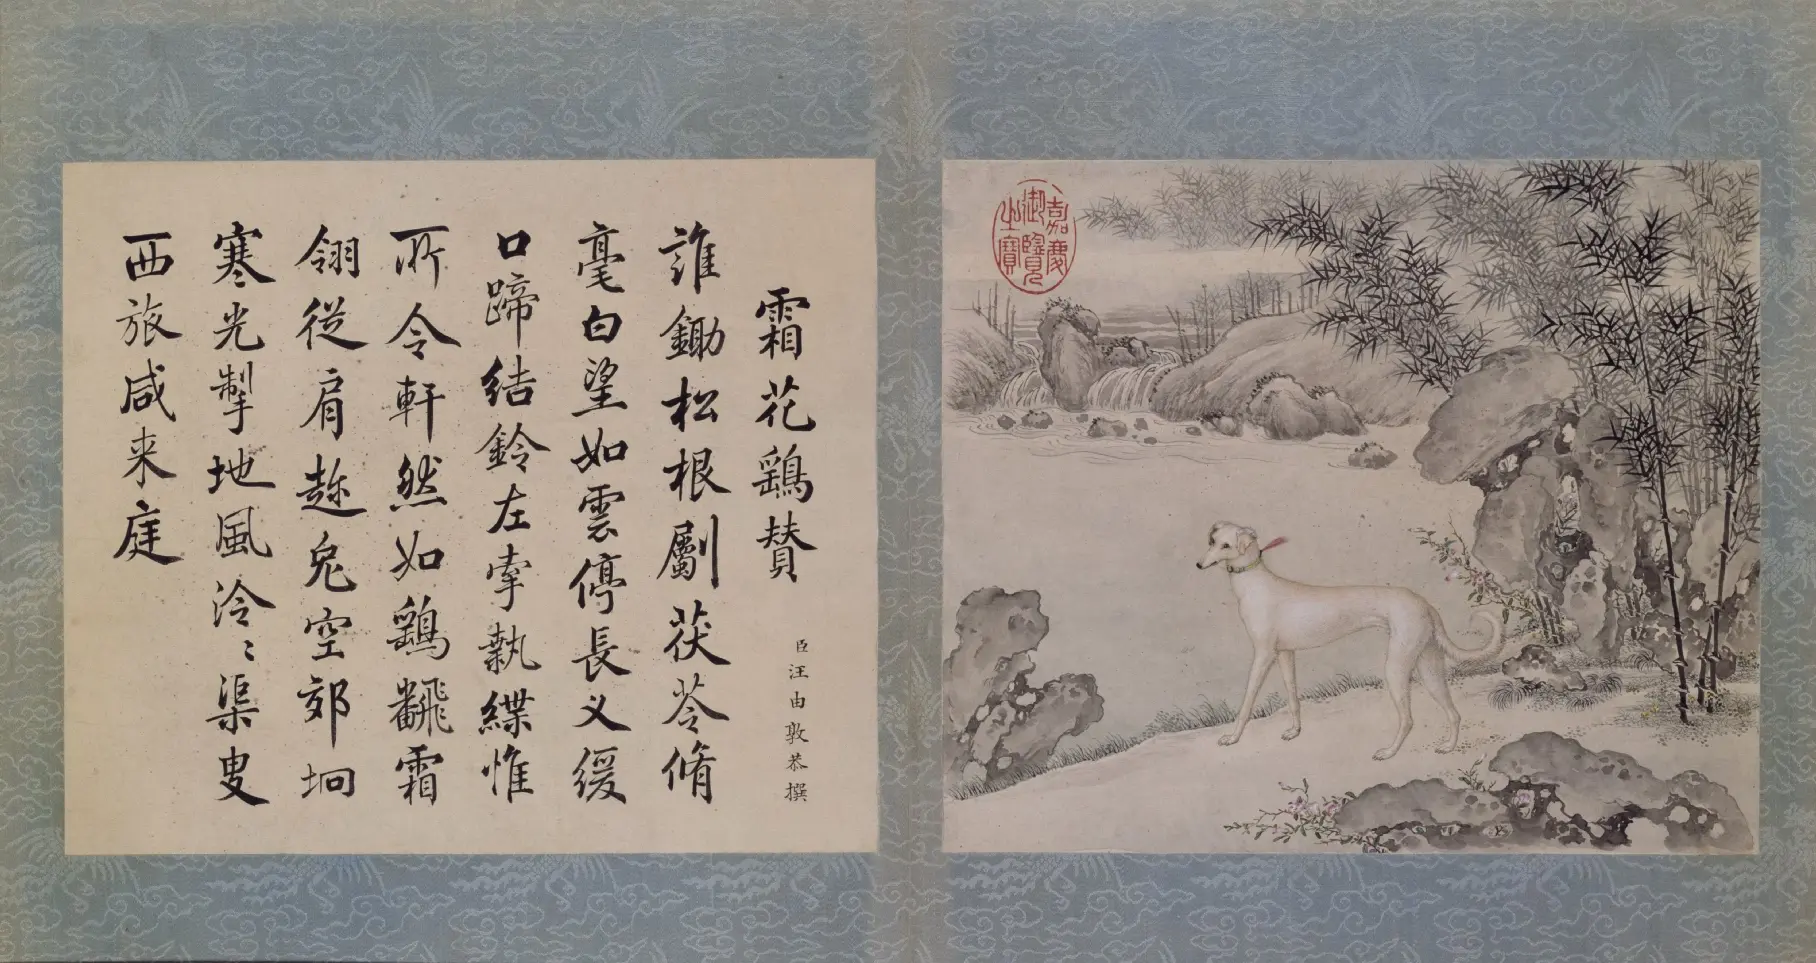 霜花鷂賛
臣汪由敦恭撰
誰鋤松根劚茯苓脩
毫白望如雲停長义緩
口蹄結鈴左牽執緤惟
所令軒然如鷂飜霜
翎從肩趂兔空郊坰
寒光掣地風泠〻渠叟
西旅咸来庭
嘉慶
御覽
之寶